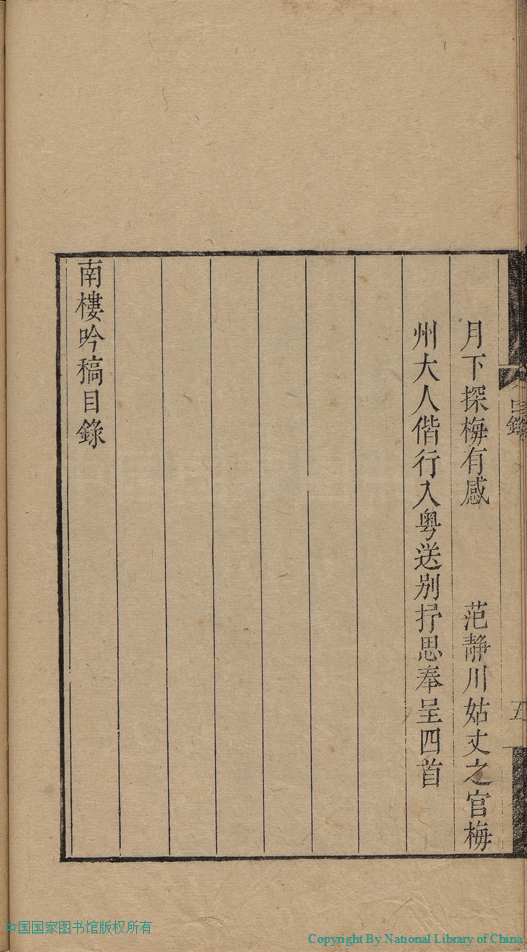 月下探梅有感　范靜川姑丈之官梅
州大人偕行入粵送別抒思奉呈四首
南樓吟稿目錄
目錄
五
中国国家图书馆版权所有
Copyright By National Library of China